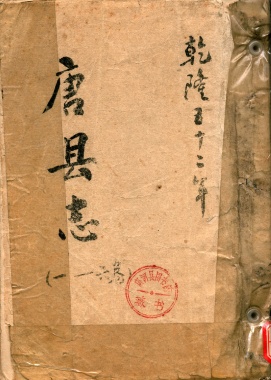 乾隆五十二年
唐县志
(一—六卷)